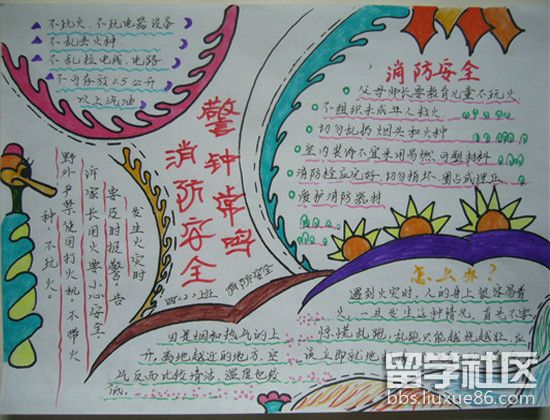 不玩火、不玩电器设备
不乱丢火种
不乱拉电线、电路
不可存放0.5公升
以上汽油
警钟常鸣
消防安全
消防安全
父母师长要教育儿童不玩火
不组织未成年人救火
切勿乱扔烟头和火种
室内装饰不宜采用易燃、可塑材料
消防栓应完好,切勿损坏、圈占或埋压
爱护消防器材
发生火灾时
要及时报警。告
诉家长用火要小心安全。
野外严禁使用打火机,不带火
种不玩火。
班
消防安全
因是烟和热气的上
升,离地越近的地方,空
气反而比较清洁,温度也较
低。
怎么办?
遇到火灾时,人的身上很容易着
火,一旦发生这种情况,首先不要
惊慌乱跑,乱跑只能越烧越旺,应
该立即就地
留学社区
bbs.liuxue86.com